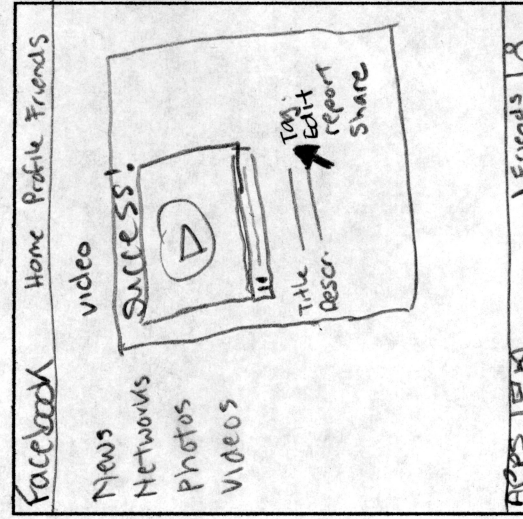 Facebook Home Profile Friends
News
Networks
Photos
Videos
video
Success!
Title
Descr.
Tag
Edit
report
Share
APPS
Friends